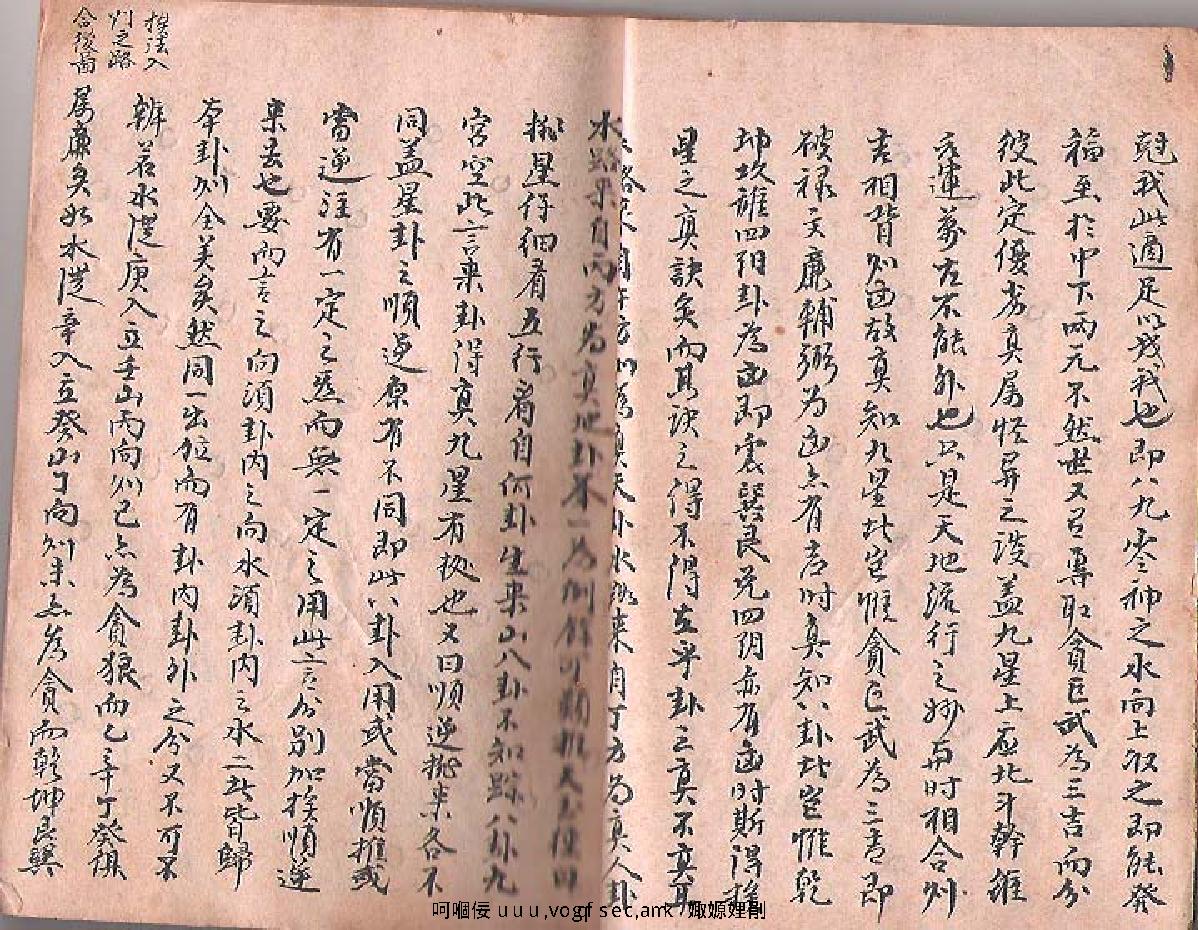 尅我此適足以戕我也即八九零神之水向上收之即能發
福至於中下兩元不然世又有專取貪巨武為三吉而分
彼此定優劣真属怪異之談盖九星上應北斗幹維
元運萬古不能外也只是天地流行之妙與时相合则
吉相背则凶故真知九星者豈惟貪巨武為三吉即
破祿文廉輔弼为凶亦有吉时真知八卦者豈惟乾
坤坎離四阳卦為凶即震巽艮兑四阴亦有凶时斯得挨
星之真訣矣而其訣之得不得在乎卦之真不真耳
水路来自丙方為真地卦举一为例餘可類推天玉経曰
挨星仔细看五行看自何卦生来山八卦不知踪八卦九
宮空此言来卦得真九星有挨也又曰順逆挨来各不
同盖星卦之順逆原有不同即此八卦入用或當順推或
當逆注有一定之然而無一定之用此言分别加挨順逆
来去也要而言之向須卦内之向水須卦内之水二者皆歸
本卦则全美矣然同一出位而有卦内卦外之分又不可不
辨若水従庚入立壬山丙向则已点為貪狼而巳辛丁癸俱
属廉矣如水従辛入立癸山丁向则未点為貪而乾坤艮巽
挨法入
门之路
合後图
呵嗰佞 u u u ,vogf s ec ,amk /娵嫄娌剬